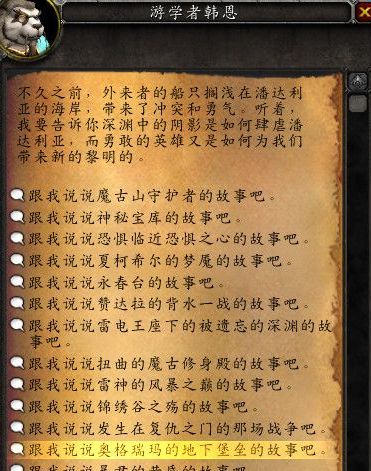 游学者韩恩
不久之前，外来者的船只搁浅在潘达利
亚的海岸，带来了冲突和勇气。听着，
我要告诉你深渊中的阴影是如何肆虐潘
达利亚，而勇敢的英雄又是如何为我们
带来新的黎明的。
跟我说说魔古山守护者的故事吧。
跟我说说神秘宝库的故事吧。
跟我说说恐惧临近恐惧之心的故事吧。
跟我说说夏柯希尔的梦魇的故事吧。
跟我说说永春台的故事吧。
跟我说说赞达拉的背水一战的故事吧。
跟我说说雷电王座下的被遗忘的深渊的故
事吧。
跟我说说扭曲的魔古修身殿的故事吧。
跟我说说雷神的风暴之巅的故事吧。
跟我说说锦绣谷之殇的故事吧。
跟我说说发生在复仇之门的那场战争吧。
跟我说说奥格瑞玛的地下堡垒的故事吧。